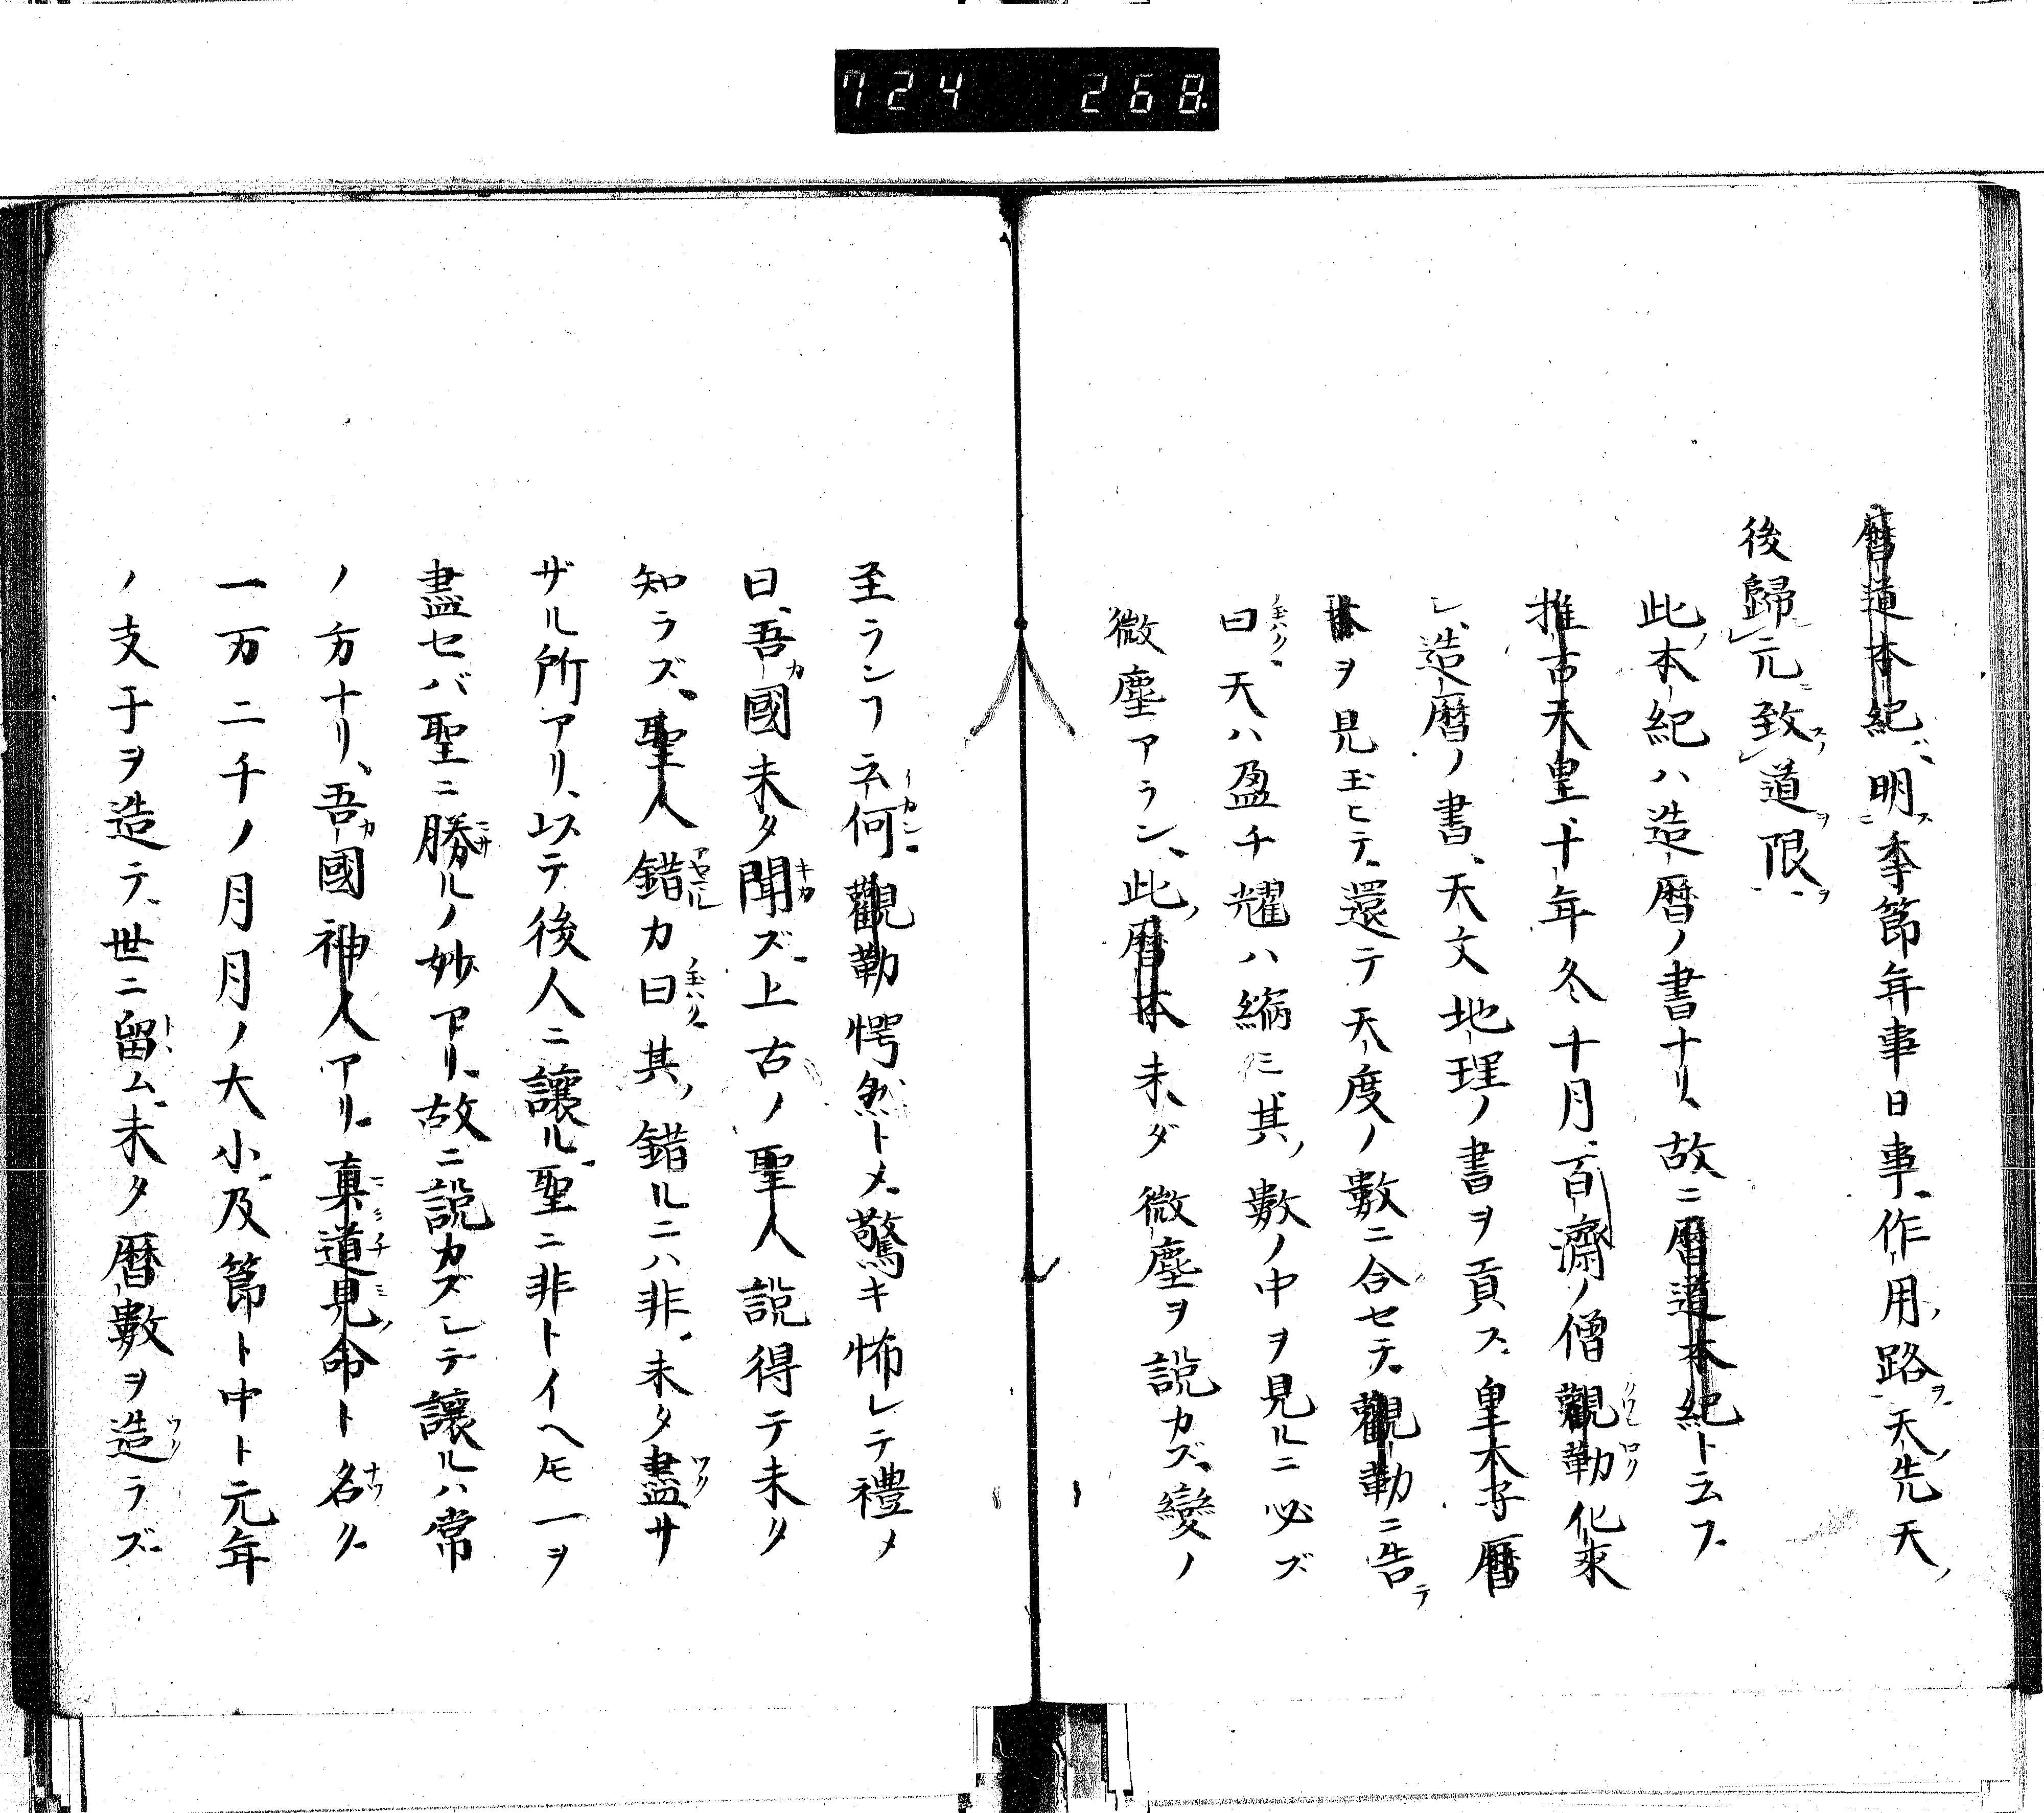 724 268.
暦道本紀、明季節年事日事、作用路、天先天
後歸元致道限
此本紀ハ造暦ノ書ナリ、故ニ暦道本紀ト云フ
推古天皇、十年冬十月、百濟ノ僧觀勒化來
シ、造暦ノ書、天文地理ノ書ヲ貢ス、皇太子暦
本ヲ見玉ヒテ、還テ天度ノ數ニ合セテ、觀勒ニ告テ
曰天ハ盈チ耀ハ縮ミ其ノ數ノ中ヲ見ルニ必ズ
微塵アラン、此ノ暦本未ダ微塵ヲ説カズ、變ノ
至ランフ子何觀勒愕然トメ、驚キ怖レテ禮メ
曰、吾カ國未タ聞ズ、上古ノ聖人説得テ未タ
知ラズ、聖人錯カ曰其ノ錯ルニハ非、未タ盡サ
ザル所アリ、以テ後人ニ讓ル、聖ニ非トイヘ𪜈一ヲ
盡セバ聖ニ勝ルノ妙アリ、故ニ説カズシテ讓ルハ常
ノ方ナリ、吾カ國神人アリ、真道見ノ命ト名ク
一万二千ノ月月ノ大小、及節ト中ト元年
ノ支干ヲ造テ、世ニ留ム、未タ暦數ヲ造ラズ